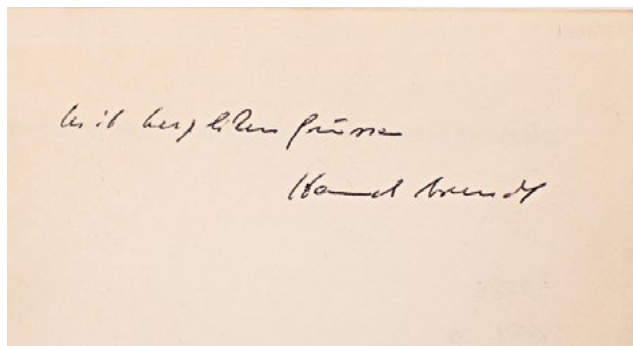 mit herzlichen Grüssen
Hannah Arendt